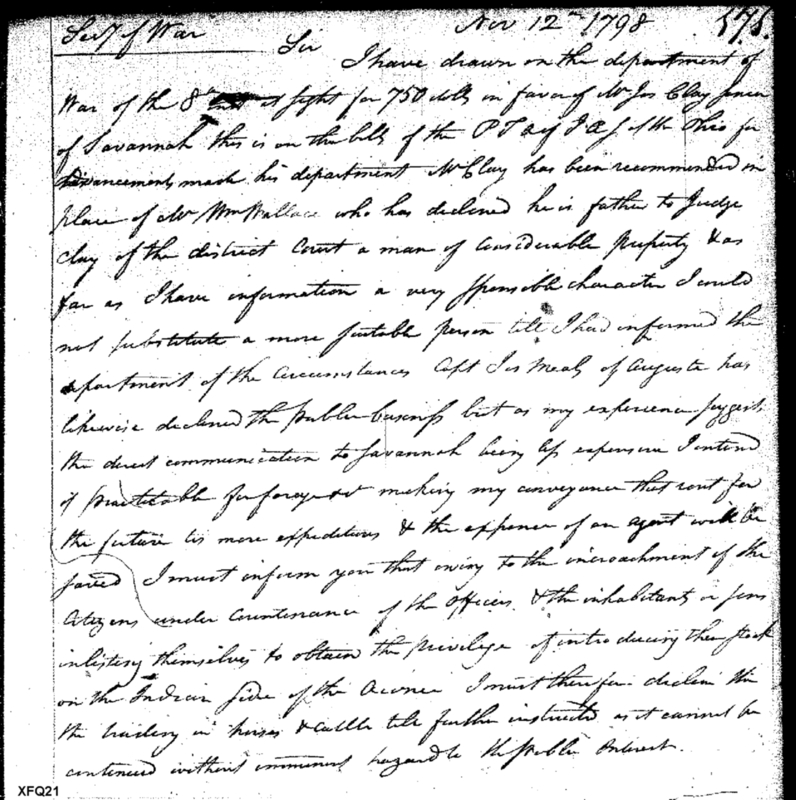 Secy of War Nov 12th 1798 575.
Sir
I have drawn on the department of
War of the 8th inst at sight for 750 dolls in favor of Mr Jos Clay Senior
of Savannah this is on the bills of the of the Ohio for
advancements made his department Mr Clay has been recommended in
place of Mr Wm Wallace who has declined he is father to Judge
Clay of the district Court a man of Considerable property & as
far as I have information a very sponsible character I could
not substitute a more suitable person till I had informed the
department of the Circumstances Capt Jas Meals of Augusta has
likewise declined the public business but as my experience suggests
the direct communication to Savannah being less expensive I intend
if practicable for forage &c making my conveyance that rout for
the future tis more expeditious & the expence of an agent will be
saved I must inform you that owing to the incroachment of the
Citizens under Countenance of the Officers & the inhabitants or
inlisting themselves to obtain the Privilege of introducing their stock
on the Indian side of the Oconee I must therefore decline the
the trading in horses & cattle till further instructed as it cannot be
continued without imminent hazard to the Public Interest.
XFQ21